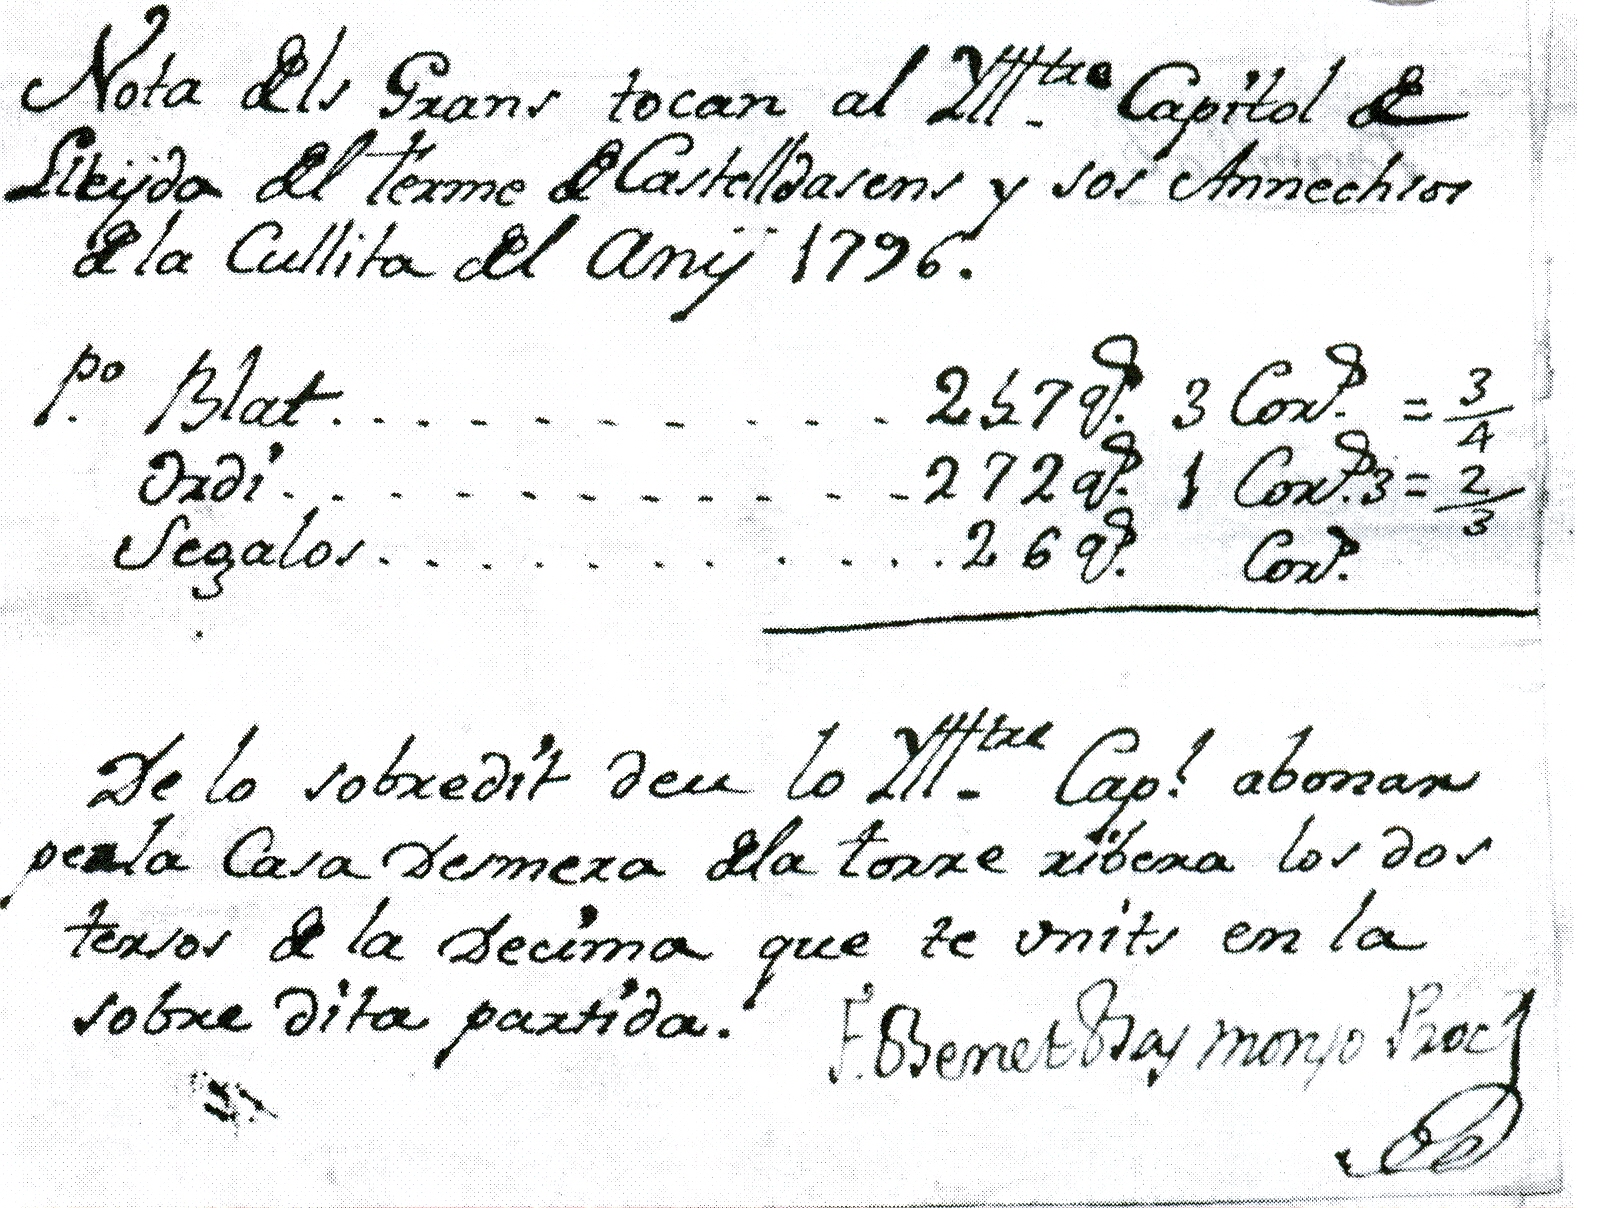 Nota dels Grans tocan al Illtre. Capitol de
Lleyda del terme de Castelldasens y sos Annechsos
de la Cullita del Any 1796.
po. Blat. . . . . . . . . . 257 qs. 3 Cors. = 3/4
Ordi. . . . . . . . . . . 272 qs. 1 Cors. 3 = 2/3
Segalos. . . . . . . . . . 26 qs. Cors.
De lo sobredit deu lo Illtre. Capl. abonar
per la Casa Desmera de la torre ribera los dos
tersos de la Decima que te units en la
sobre dita partida.
F. Benet Bay monjo Procr